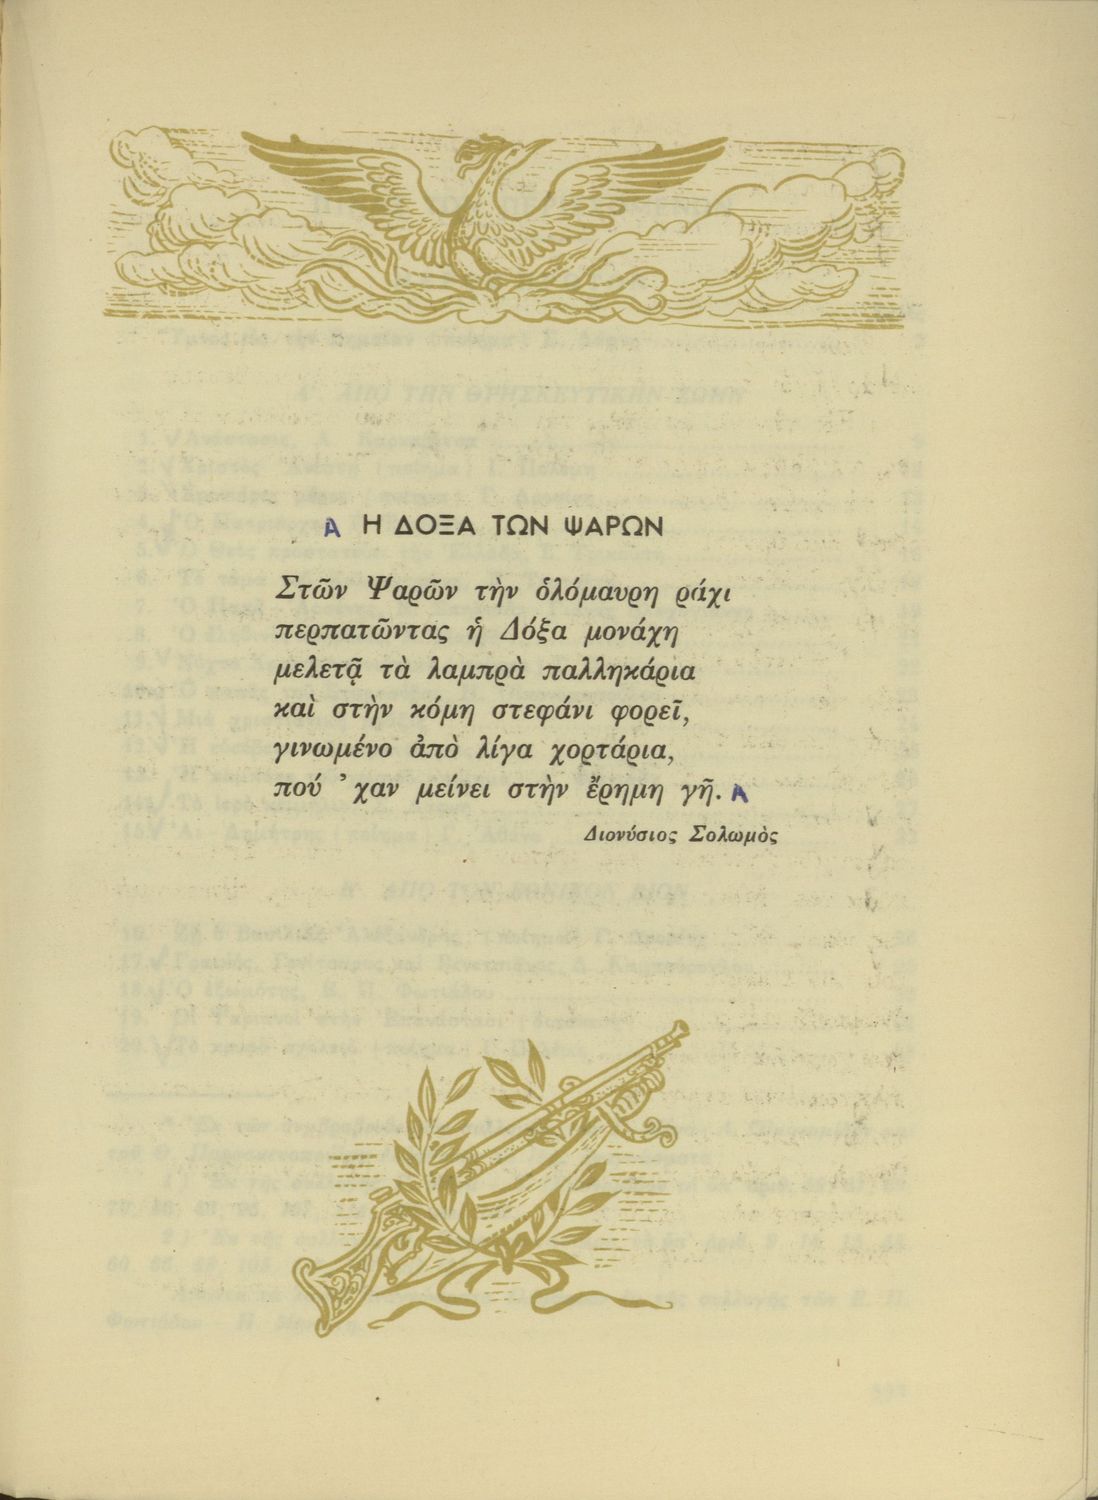 Α Η ΔΟΞΑ ΤΩΝ ΨΑΡΩΝ
Στῶν Ψαρῶν τὴν ὁλόμαυρη ράχι
περπατῶντας ἡ Δόξα μονάχη
μελετᾷ τὰ λαμπρὰ παλληκάρια
καὶ στὴν κόμη στεφάνι φορεῖ,
γινωμένο ἀπὸ λίγα χορτάρια,
πού ’χαν μείνει στὴν ἔρημη γῆ. Α
Διονύσιος Σολωμὸς